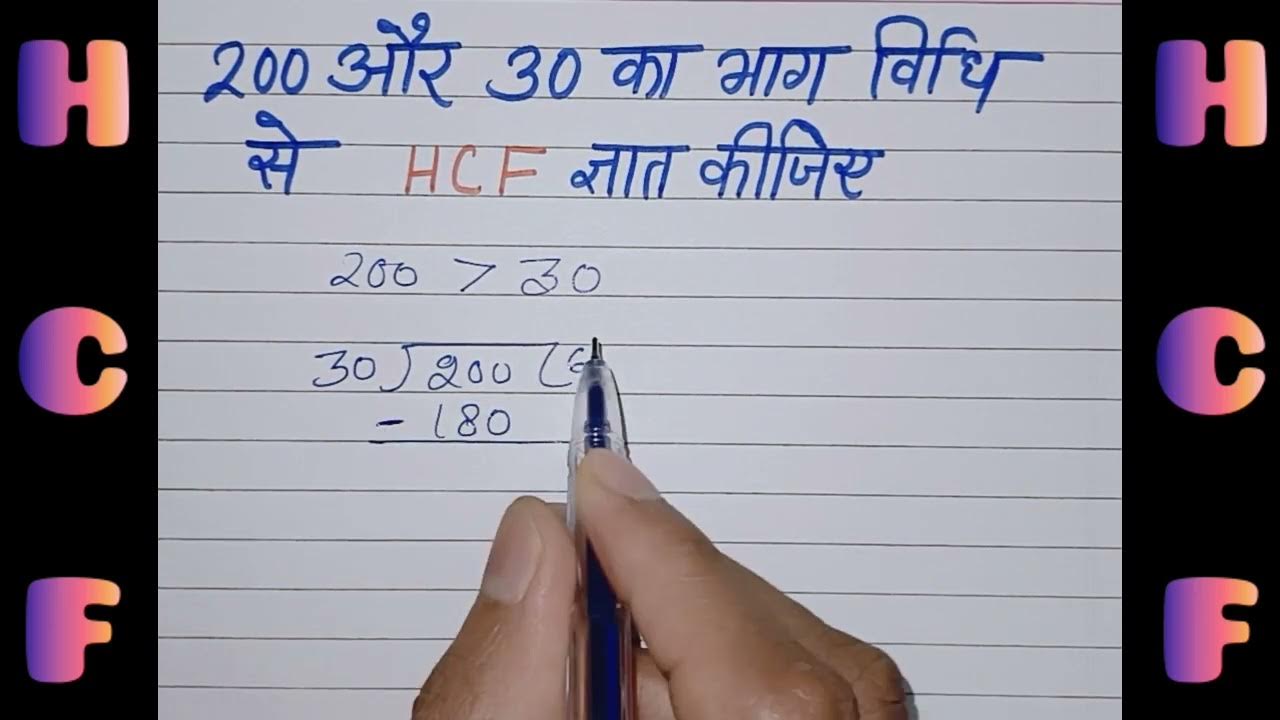 H
C
F
200 और 30 का भाग विधि
से HCF ज्ञात कीजिए
200 > 30
30)200(
- 180
H
C
F